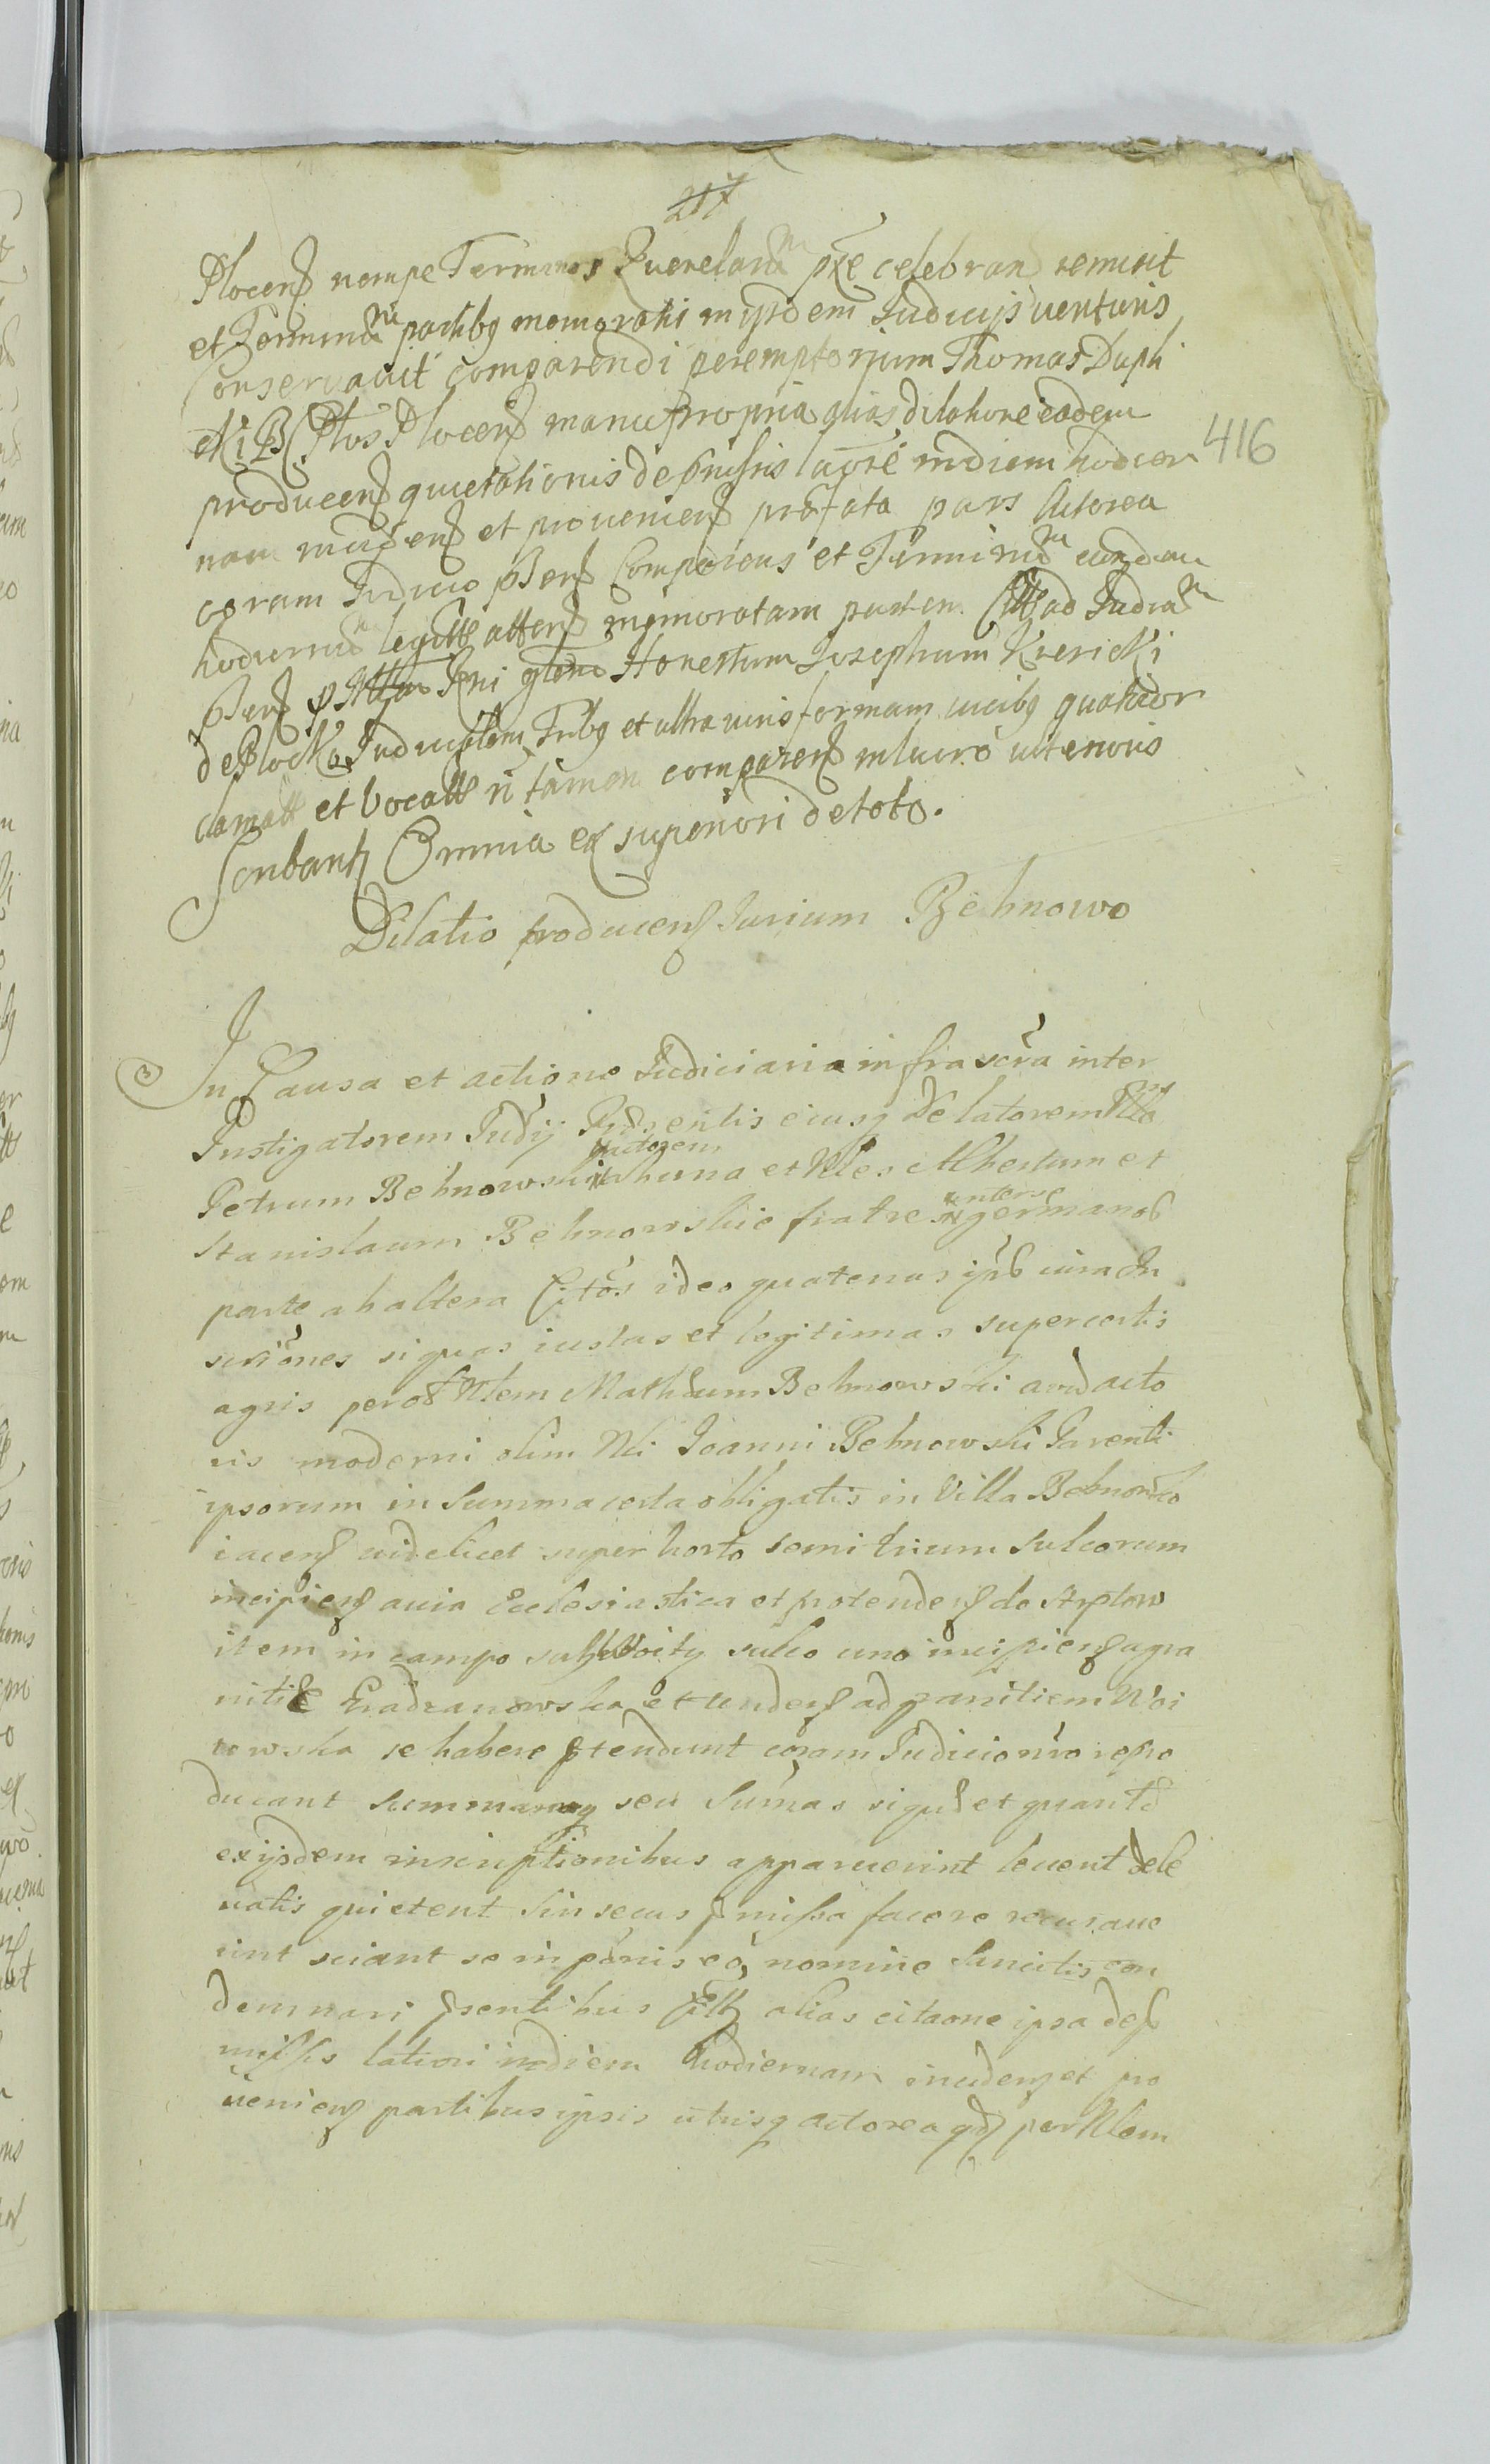 217
Plocens nempe Terminos Querelarum pñe celebran remisit
et Terminum partibus memoratis in ijsdem Iudicijs venturis
Conservavit comparendi peremptorium Thomas Dupli
cki BC Plos Plocens manu propria alias dilatione eadem
producens quietationis de pmissis latore in diem hodier
416
nam incidens et proveniens praefata pars Actorea
coram Iudicio psens Comparens et Terminum eundem
hodiernum legitte attens memoratam partem Citt ad Iudicium
psens Honestum Iosephum Krericki
de Plocko Tribus et ultra iuris formam vicibus quatuor
clamatt et vocatt n tamen comparens in lucro ulterioris
Scribantur Omnia ex superiori de toto.
Dilatio producens Iurium Belnowo
In Causa et actione Iudiciaria infrascra inter
Instigatorem Iudij Prdsentis eiusq Delatorem Nlla
Petrum Belnowski actorem ab una et Nles Albertum et
Stanislaum Belnowskie fratres inter se germanos
parte ab altera Citos ideo quatenus ipsi iura In
scriones si quas iustas et legitimas super certis
agris per olim Nlem Mathaeum Belnowski avum acto
ris moderni olim Nli Joanni Belnowski Parenti
ipsorum in summa certa obligatis in Villa Belnowo
iacens videlicet super horto semi trium sulcorum
incipiens a via Ecclesiastica et protendens do
item in campo sub sulco uno incipiens a gra
nitie et tendens ad granitiem Woi
towska se habere ptendunt coram Iudicio nro repro
ducant summamq seu Sumas si quae et quantae
ex ijsdem inscriptionibus apparuerint levent de le
vatis quietent Sin secus pmissa facere recusave
rint sciant se in penis eo nomine Sancitis con
demnari psentibus alias citaone ipsa de p
missis latiori in diem hodiernam incidens et pro
veniens partibus ipsis utrisq actorea qd per Nlem